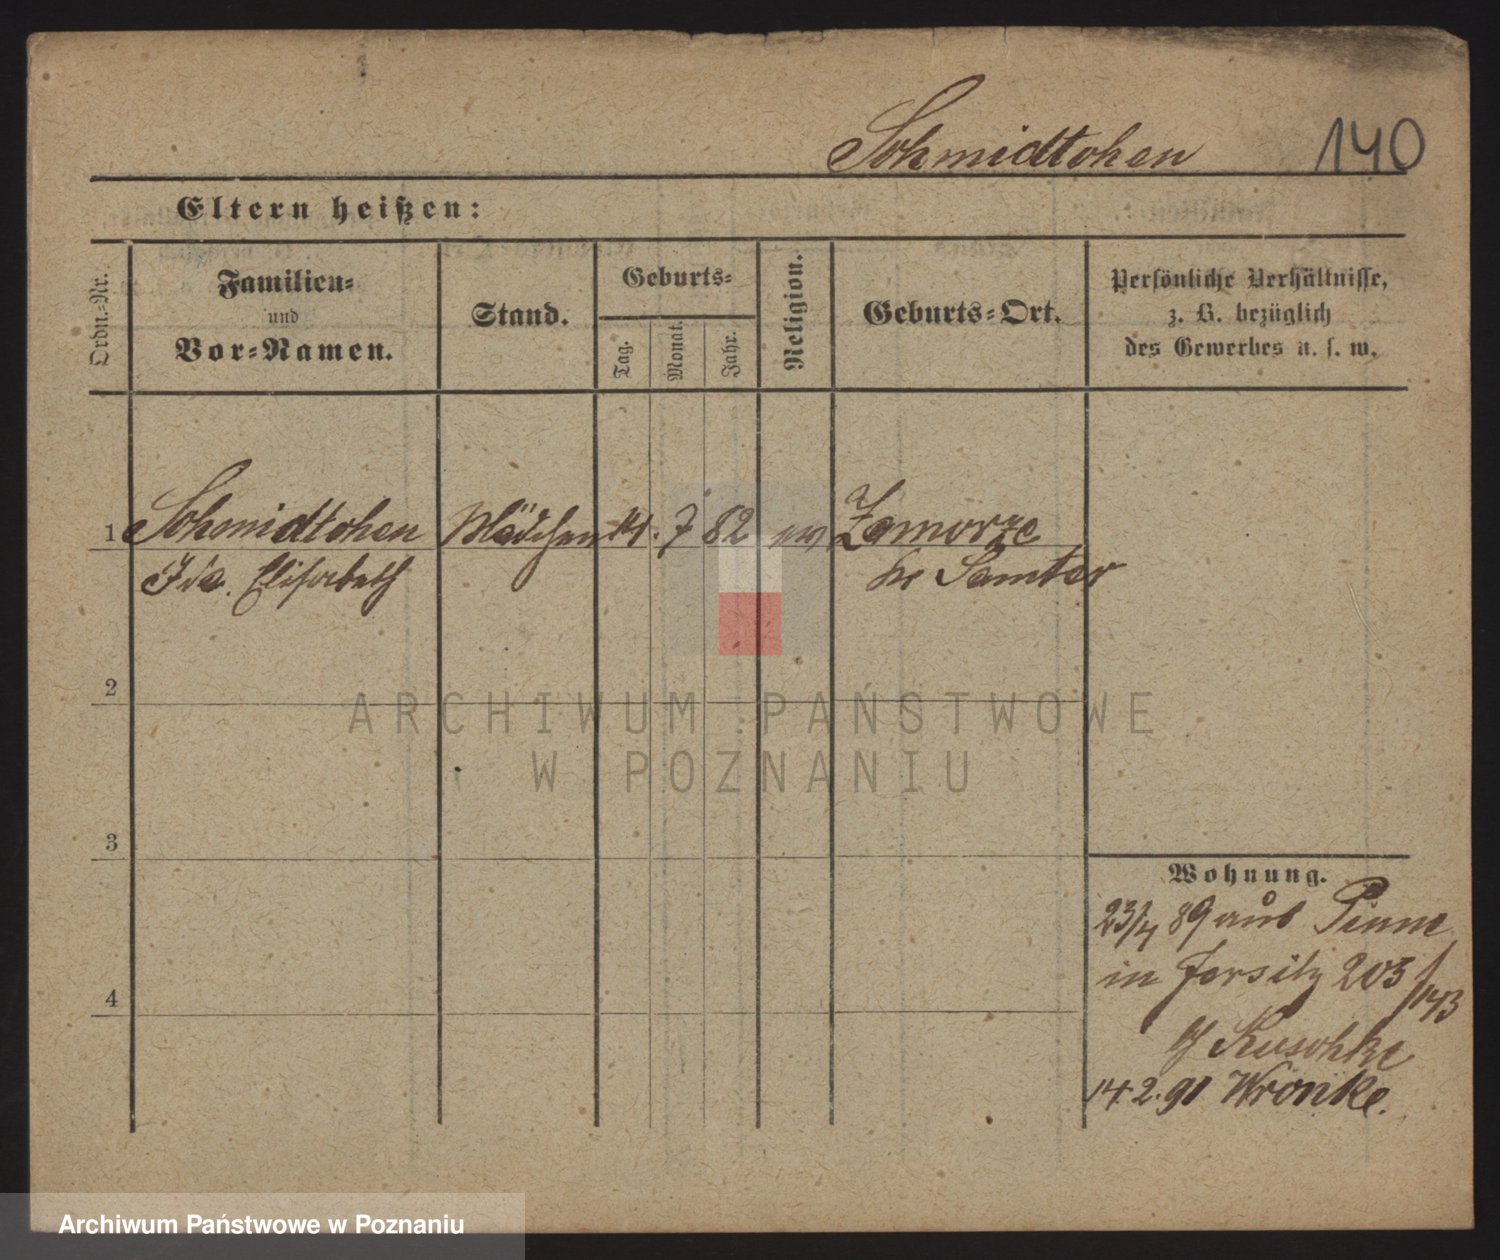 Schmidtchen 140
Eltern heißen:
Ordn.-Nr.
Familien-
und
Vor-Namen.
Stand.
Geburts-
Tag.
Monat.
Jahr.
Religion.
Geburts-Ort.
Persönliche Verhältnisse,
z. B. bezüglich
des Gewerbes u. s. w.
1 Schmidtchen Mädchen 14. 7 82 ev Zamorze
Ida. Elisabeth Kr Samter
2
3
4
Wohnung.
23/4 89 aus Pinne
in Jersitz 203/143
b/ Kuschke
14.2.91 Wronke.
ARCHIWUM PAŃSTWOWE
W POZNANIU
Archiwum Państwowe w Poznaniu